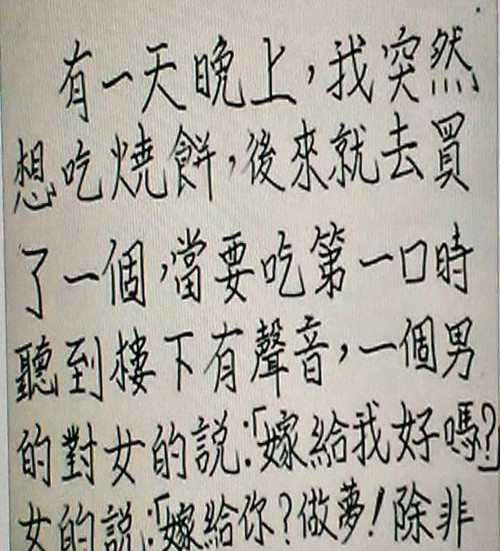 有一天晚上，我突然
想吃燒餅，後來就去買
了一個，當要吃第一口時
聽到樓下有聲音，一個男
的對女的說：「嫁給我好嗎？」
女的說：「嫁給你？做夢！除非